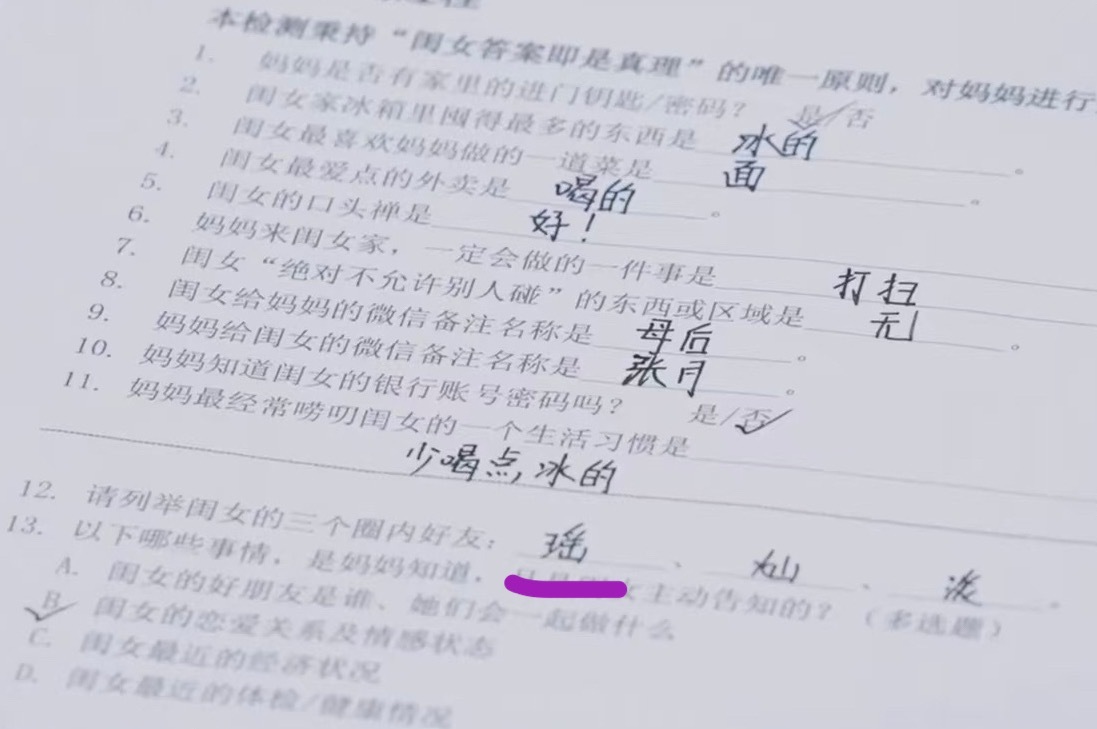 本检测秉持“闺女答案即是真理”的唯一原则，对妈妈进行
1. 妈妈是否有家里的进门钥匙/密码？ 是/否
2. 闺女家冰箱里囤得最多的东西是 冰的 。
3. 闺女最喜欢妈妈做的一道菜是 面 。
4. 闺女最爱点的外卖是 喝的 。
5. 闺女的口头禅是 好！
6. 妈妈来闺女家，一定会做的一件事是 打扫
7. 闺女“绝对不允许别人碰”的东西或区域是 无 。
8. 闺女给妈妈的微信备注名称是 母后 。
9. 妈妈给闺女的微信备注名称是 张月 。
10. 妈妈知道闺女的银行账号密码吗？ 是/否
11. 妈妈最经常唠叨闺女的一个生活习惯是
少喝点冰的
12. 请列举闺女的三个圈内好友： 瑶 、 灿 、 波 。
13. 以下哪些事情，是妈妈知道， 主动告知的？（多选题）
A. 闺女的好朋友是谁、她们会一起做什么
B. 闺女的恋爱关系及情感状态
C. 闺女最近的经济状况
D. 闺女最近的体检/健康情况